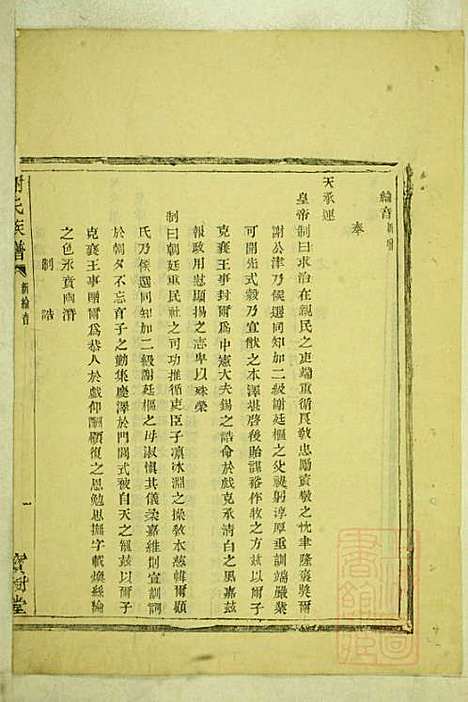 綸音新增
奉
天承運
皇帝制曰求治在親民之吏端重循良敎忠勵資敬之忱聿隆褒獎爾
謝公津乃候選同知加二級謝廷樞之父褆躬淳厚垂訓端嚴業
可開先式穀乃宣猷之本澤堪啓後貽謀裕作牧之方茲以爾子
克襄王事封爾爲中憲大夫錫之誥命於戲克承淸白之風嘉茲
報政用慰顯揚之志畀以殊榮
制曰朝廷重民社之司功推循吏臣子凜冰淵之操敎本慈幃爾顧
氏乃候選同知加二級謝廷樞之母淑愼其儀柔嘉維則宣訓詞
於朝夕不忘育子之勤集慶澤於門閭式被自天之寵茲以爾子
克襄王事贈爾爲恭人於戲仰酬顧復之恩勉思撫字載煥絲綸
之色永賁幽潛
制誥
謝氏族譜
新綸音
一
寶樹堂